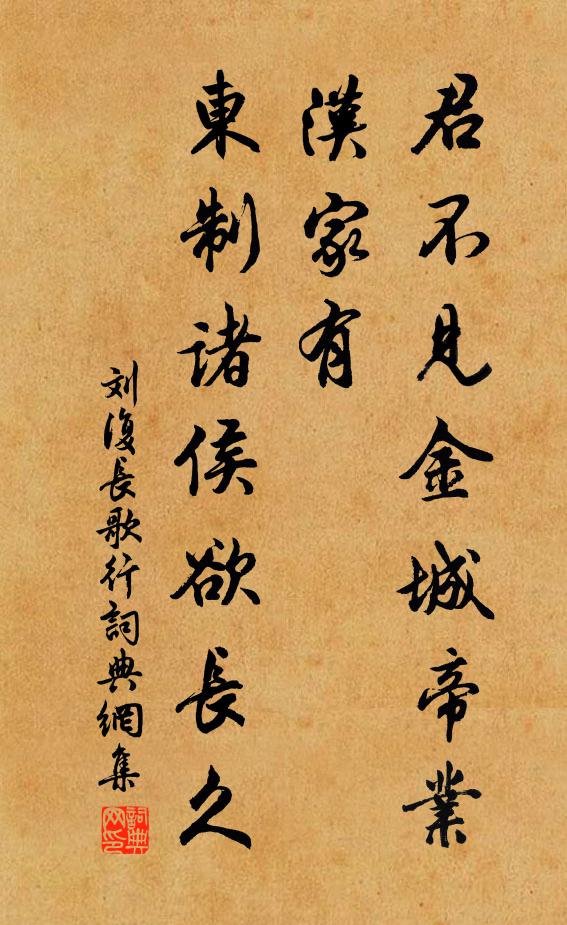 君不見金城帝業
漢家有
東制諸侯欲長久
刘復長歌行詞典網集
詞典网印